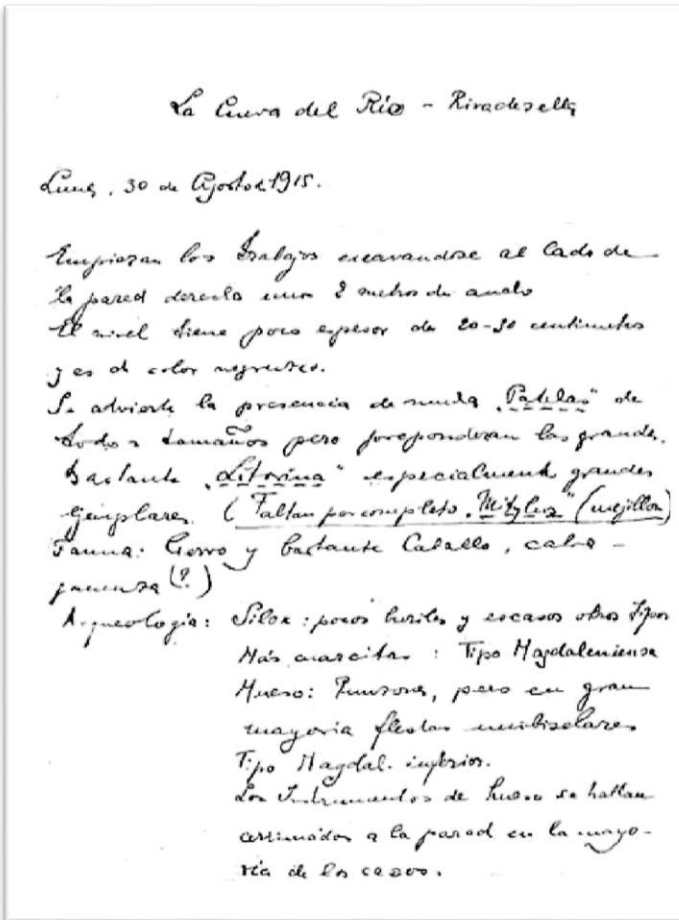 La Cueva del Río - Rivadesella
Lunes, 30 de Agosto de 1915.
Empiezan los trabajos excavandose al lado de
la pared derecha unos 2 metros de ancho
El nivel tiene poco espesor de 20-30 centimetros
y es de color negruzco.
Se advierte la presencia de mucha „Patelas" de
todos tamaños pero preponderan las grandes.
Bastante „Litorina" especialmente grandes
ejemplares. (Faltan por completo „Mitylus" (mejillon)
Fauna: Ciervo y bastante Caballo, cabra
(?)
Arqueologia: Silex: pocos buriles y escasos otros tipos
Más cuarcitas: Tipo Magdaleniense
Hueso: Punzones, pero en gran
mayoria flechas unibiselares
Tipo Magdal. inferior.
Los Instrumentos de hueso se hallan
arrimados a la pared en la mayo-
ria de los casos.